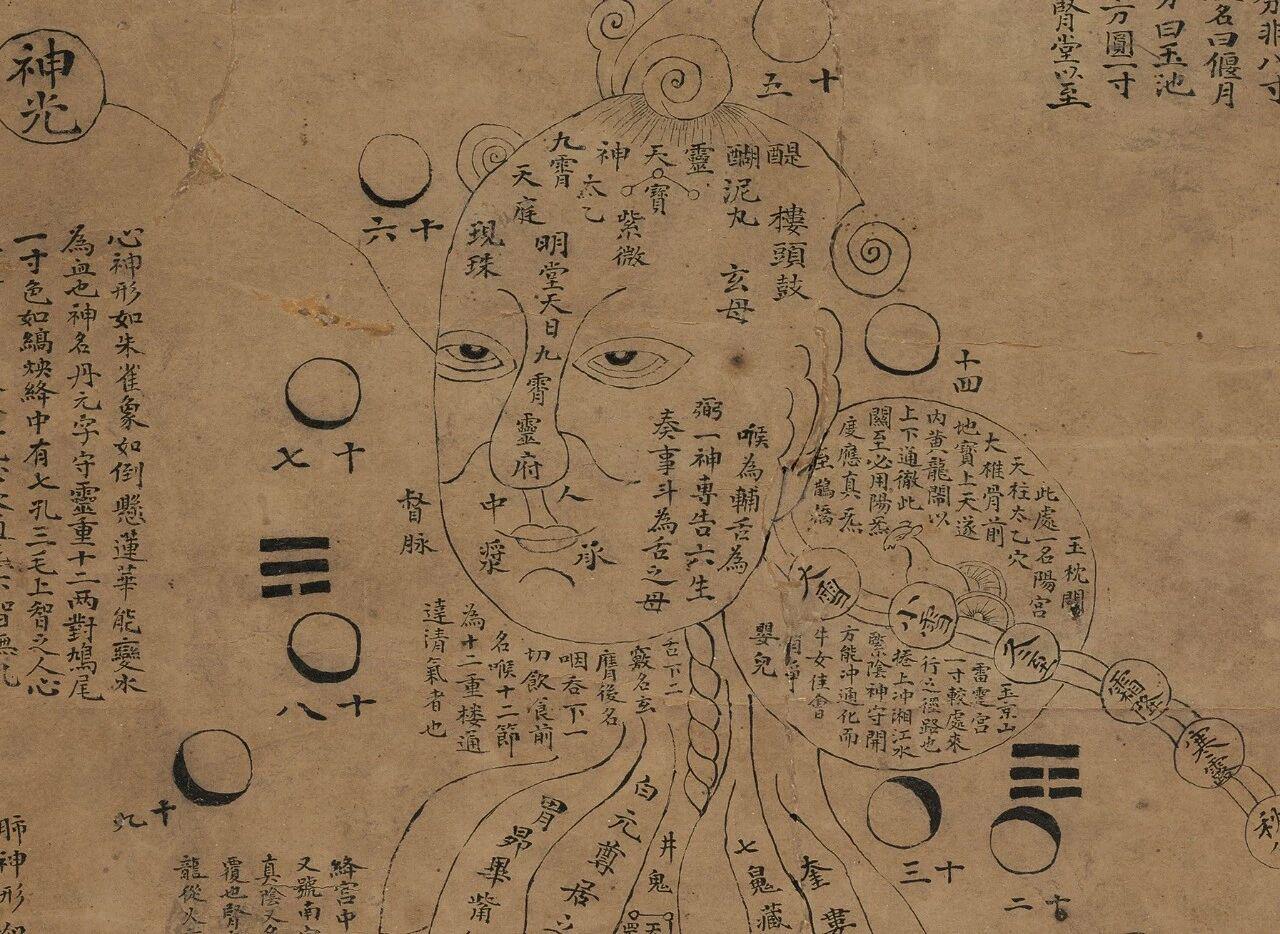 分非八寸
名曰偃月
方曰玉池
方圓一寸
腎堂以至
十五
神光
十六
十四
十七
十八
十九
十三
十二
醍醐
靈
天
神
九霄
天庭
太乙
天寶
紫微
泥丸
玄母
樓頭鼓
現珠
明堂天日九霄靈府
人中
承漿
督脉
喉為輔舌為
弼一神專告六生
奏事斗為舌之母
玉枕關
此處一名陽宮
天柱太乙穴
大椎骨前
地寶上天遂
內黃龍關以
上下通徹此
關至必用陽炁
度應真炁
至鵲橋
大雪
小雪
立冬
霜降
寒露
秋
玉京山
雷霆宮
一寸較處來
行之徑路也
捲上冲湘江水
繫陰神守開
方能冲通化而
牛女佳會
嬰兒
舌下二
竅名玄
膺後名
咽吞下一
切飲食前
名喉十二節
為十二重楼通
達清氣者也
心神形如朱雀象如倒懸蓮華能變水
為血也神名丹元字守靈重十二两對鳩尾
一寸色如縞映絳中有七孔三毛上智之人心
肺神形如
絳宮中
又號南宮
真陰又名
覆也腎
龍從火
胃昴畢觜
白元尊居之
井鬼
七鬼藏
奎婁